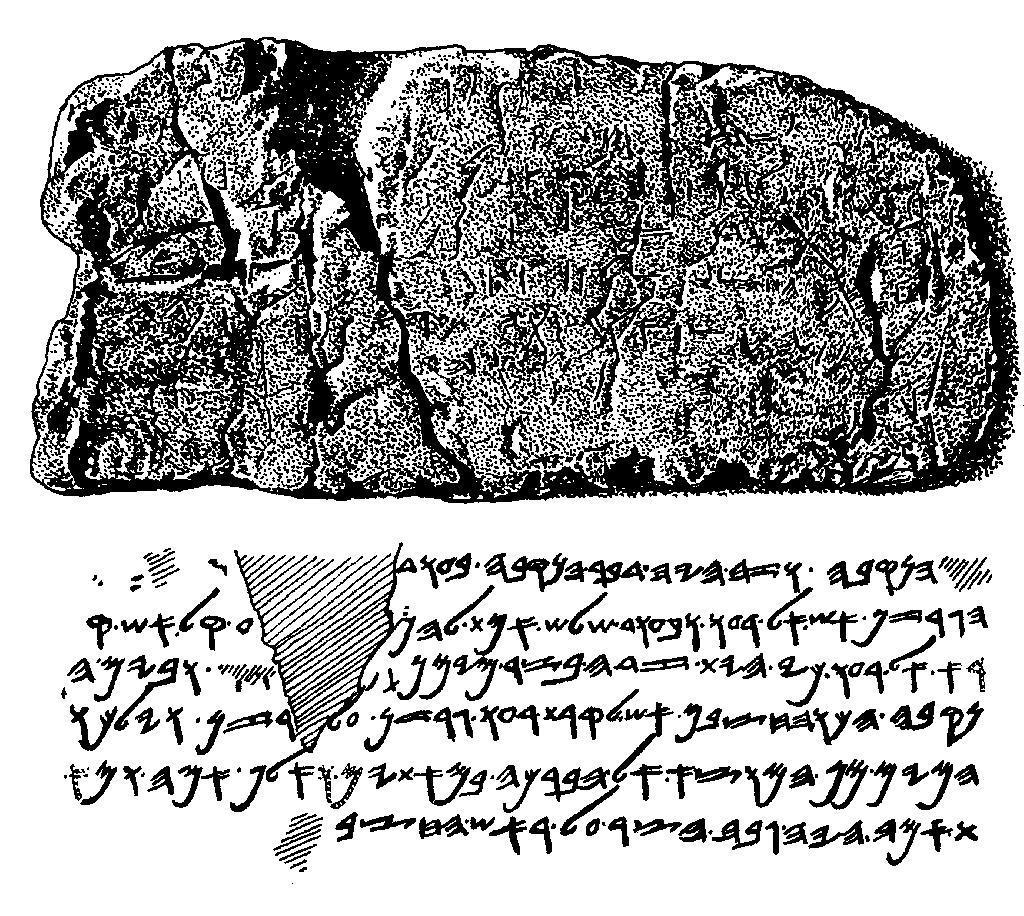 𐤄𐤍𐤒𐤁𐤄 · 𐤅𐤆𐤄 · 𐤄𐤉𐤄 · 𐤃𐤁𐤓 · 𐤄𐤍𐤒𐤁𐤄 · 𐤁𐤏𐤅𐤃
𐤄𐤂𐤓𐤆𐤍 · 𐤀𐤔 · 𐤀𐤋 · 𐤓𐤏𐤅 · 𐤅𐤁𐤏𐤅𐤃 · 𐤔𐤋𐤔 · 𐤀𐤌𐤕 · 𐤋𐤄𐤍 𐤏 · 𐤒𐤋 · 𐤀𐤔 · 𐤒
𐤓𐤀 · 𐤀𐤋 · 𐤓𐤏𐤅 · 𐤊𐤉 · 𐤄𐤉𐤕 · 𐤆𐤃𐤄 · 𐤁𐤑𐤓 · 𐤌𐤉𐤌𐤍 · 𐤅𐤁𐤉𐤌 · 𐤄
𐤍𐤒𐤁𐤄 · 𐤄𐤊𐤅 · 𐤄𐤇𐤑𐤁𐤌 · 𐤀𐤔 · 𐤋𐤒𐤓𐤕 · 𐤓𐤏𐤅 · 𐤂𐤓𐤆𐤍 · 𐤏𐤋 · 𐤓𐤆𐤍 · 𐤅𐤉𐤋𐤊𐤅
𐤄𐤌𐤉𐤌 · 𐤌𐤍 · 𐤄𐤌𐤅𐤑𐤀 · 𐤀𐤋 · 𐤄𐤁𐤓𐤊𐤄 · 𐤁𐤌𐤀𐤕𐤉𐤌 · 𐤅𐤀𐤋𐤐 · 𐤀𐤌𐤄 · 𐤅𐤌𐤀
𐤕 · 𐤀𐤌𐤄 · 𐤄𐤉𐤄 · 𐤂𐤁𐤄 · 𐤄𐤑𐤓 · 𐤏𐤋 · 𐤓𐤀𐤔 · 𐤄𐤇𐤑𐤁